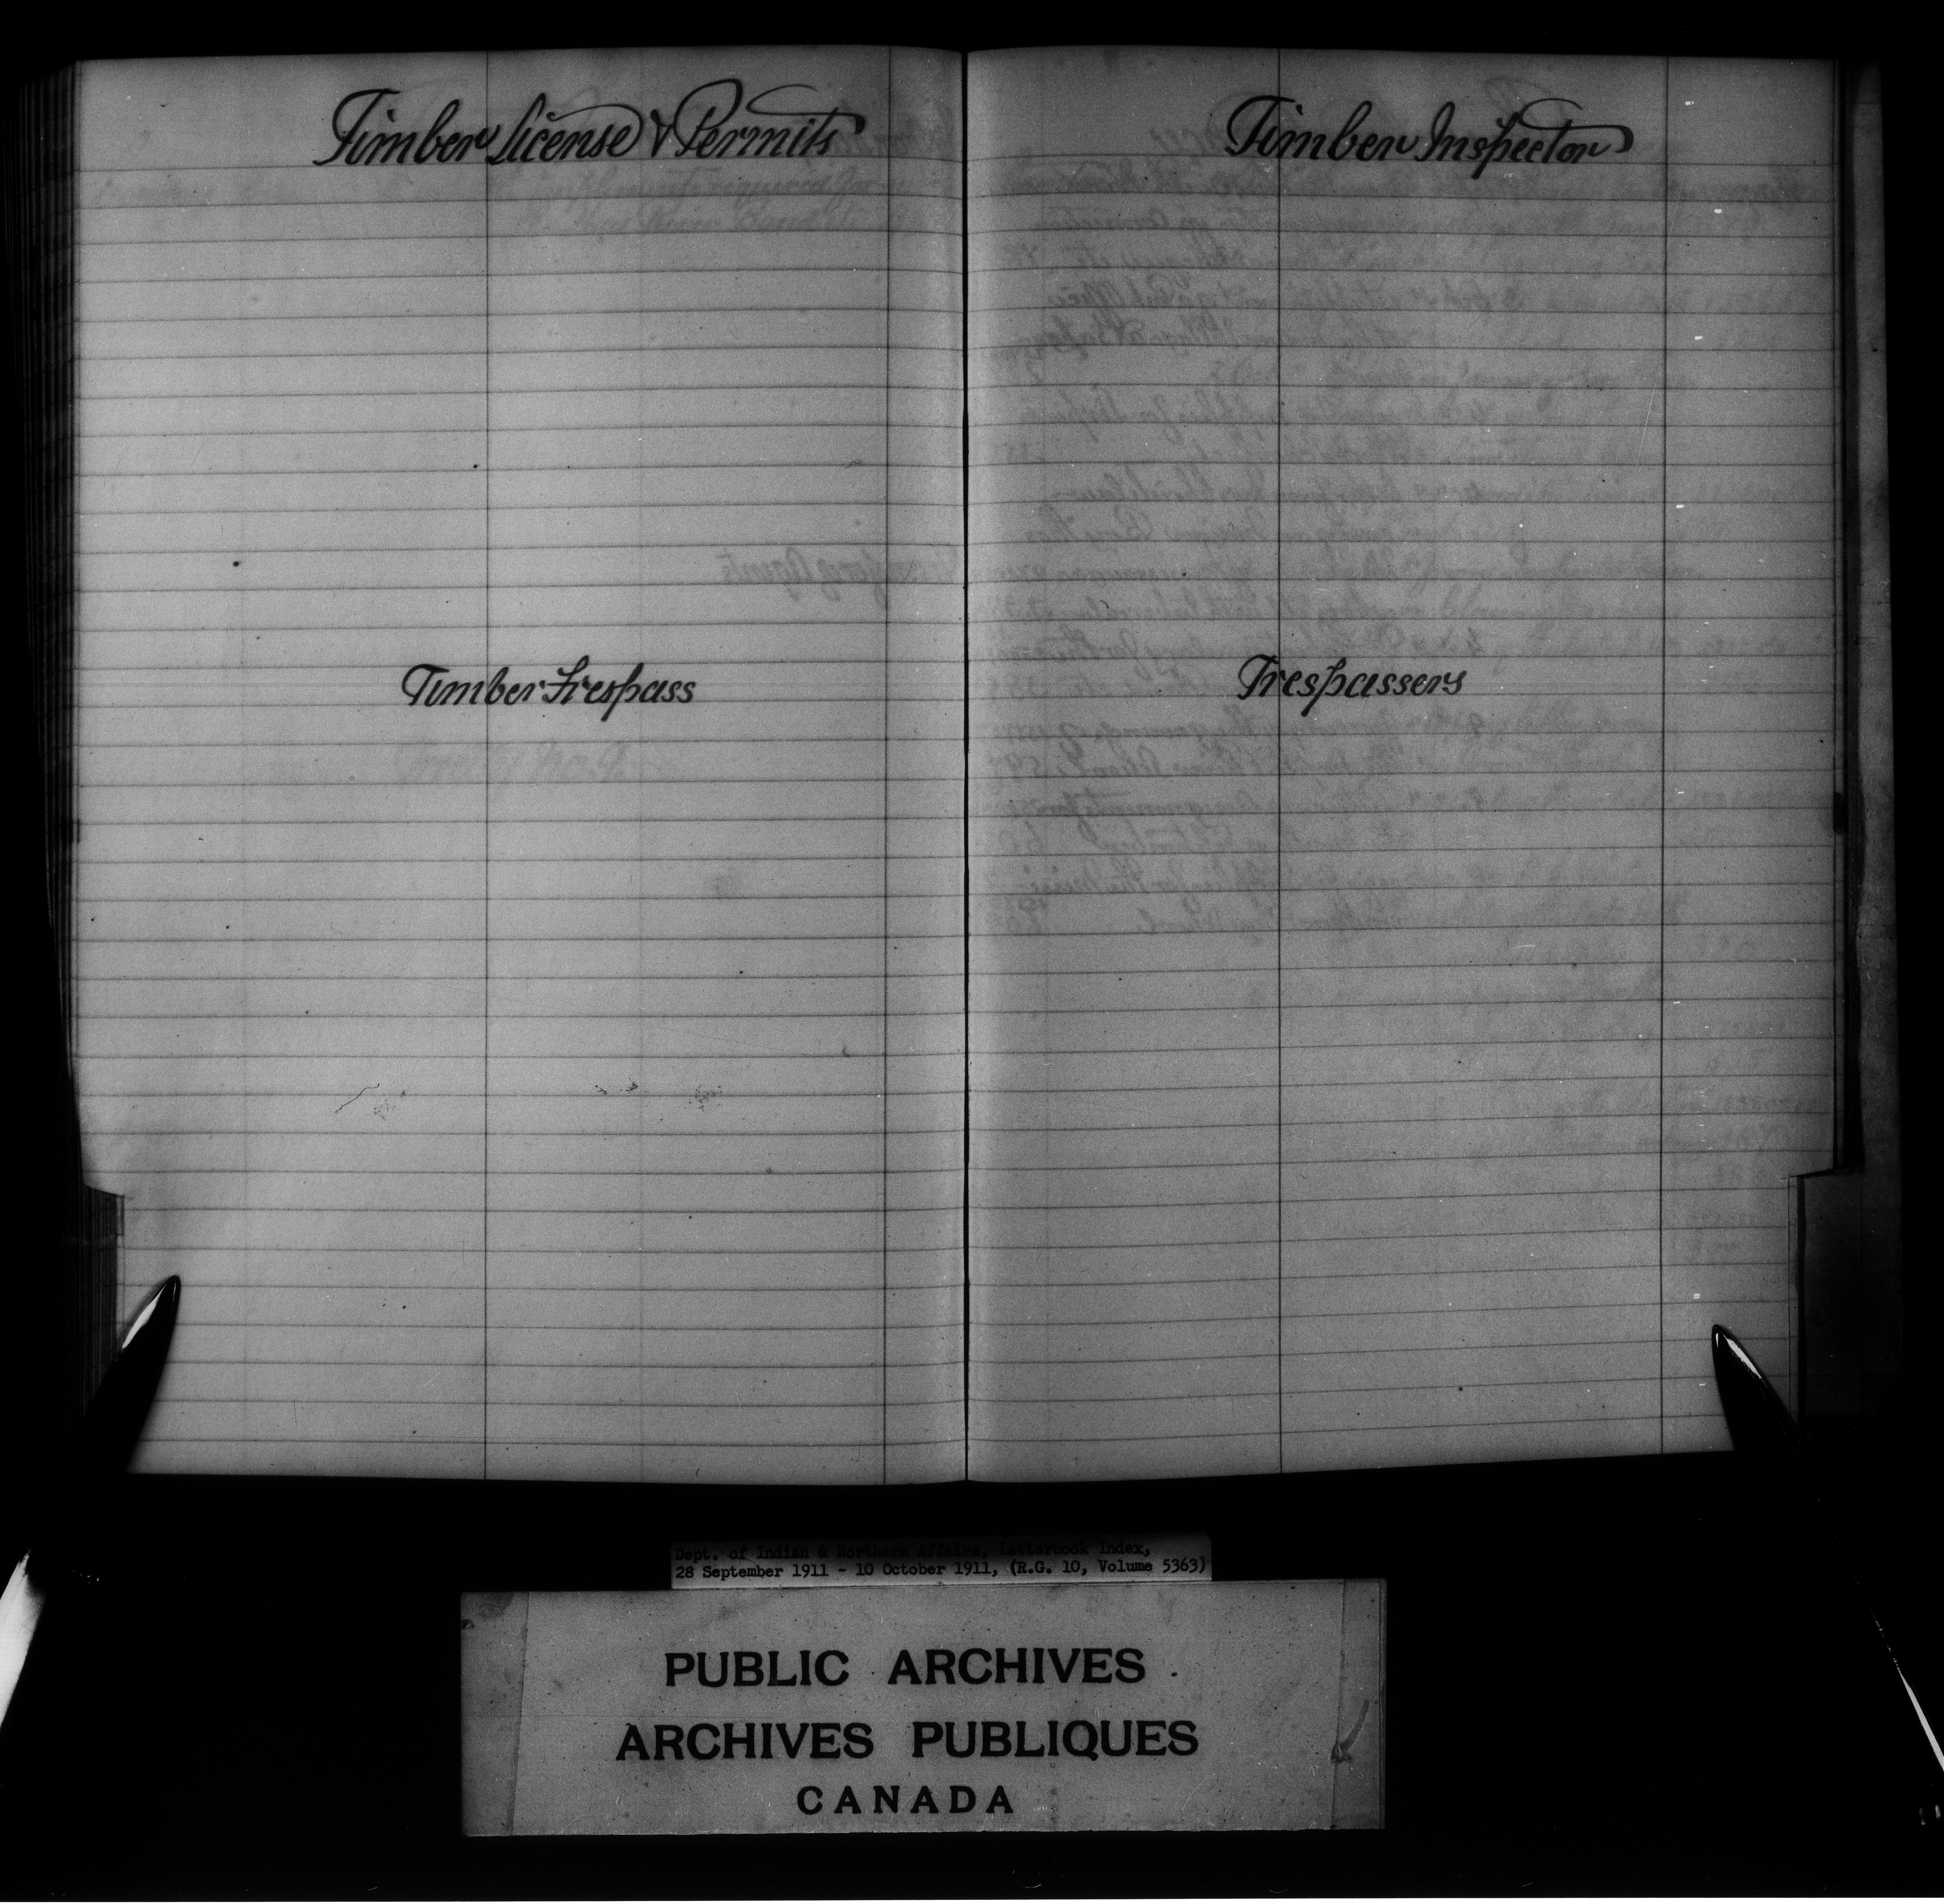 Timber License & Permits
Timber Trespass
Timber Inspector
Trespassers
Dept. of Indian & Northern Affairs, Letterbook Index,
28 September 1911 - 10 October 1911, (R.G. 10, Volume 5363)
PUBLIC ARCHIVES
ARCHIVES PUBLIQUES
CANADA